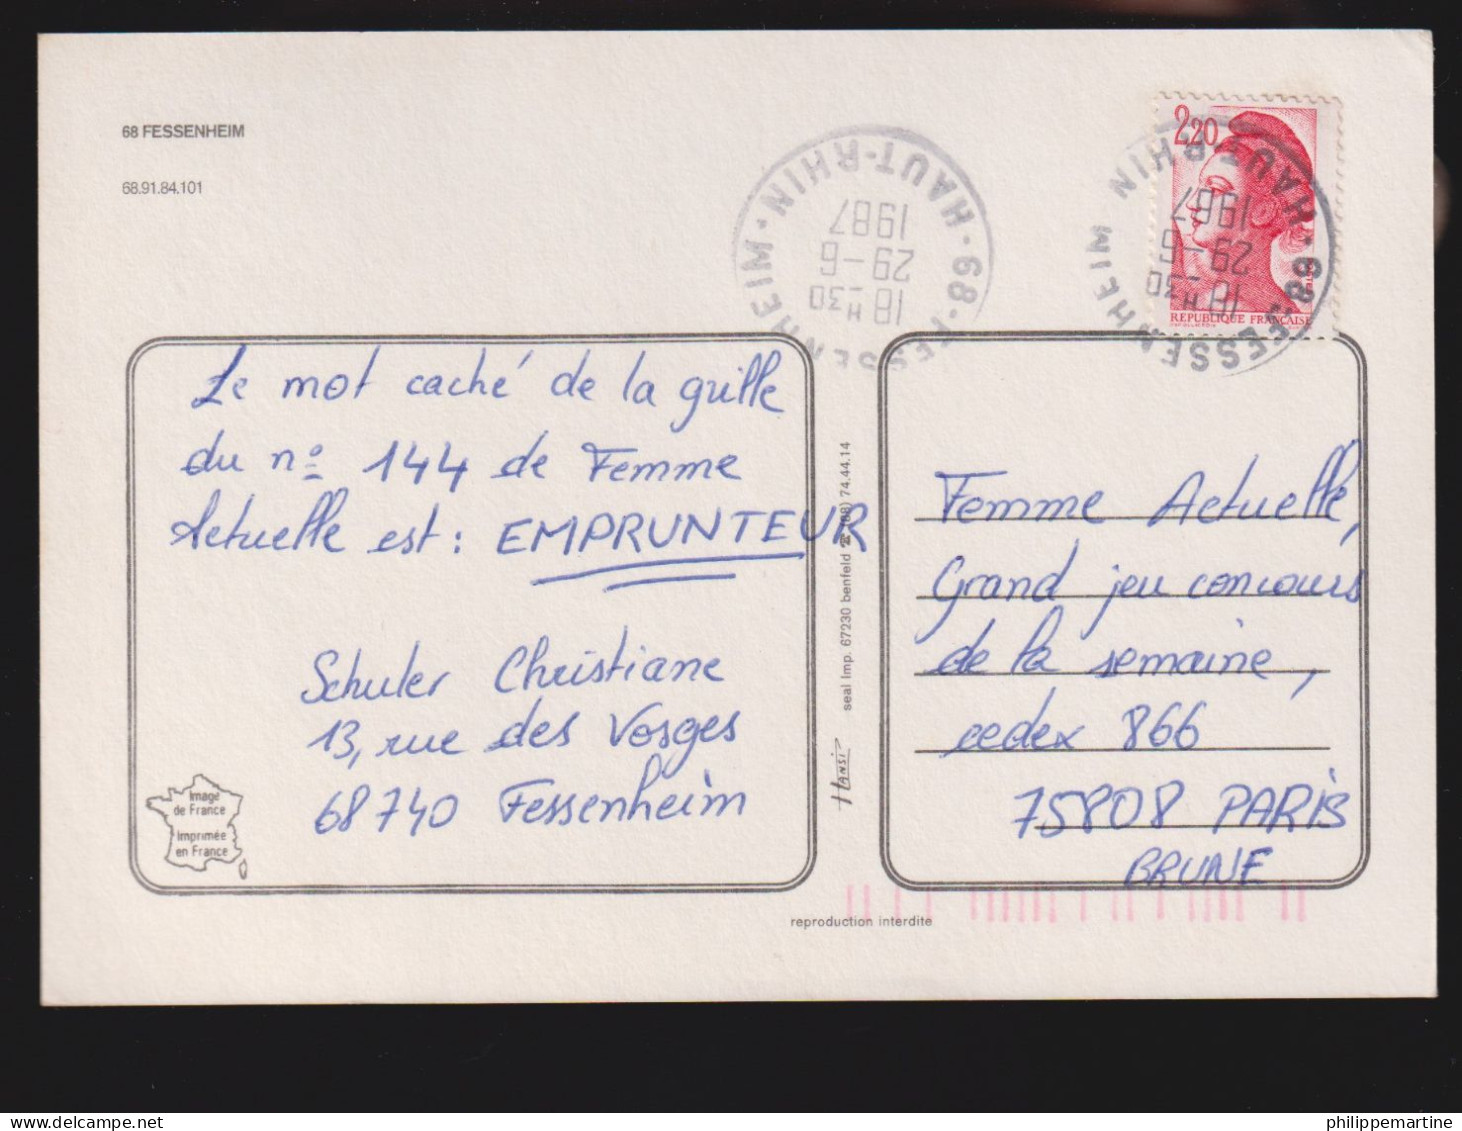 68 FESSENHEIM
68.91.84.101
68-FESSENHEIM · HAUT-RHIN ·
18 H30
29-6
1987
68-FESSENHEIM HAUT-RHIN ·
18 H30
29-6
1987
2,20
REPUBLIQUE FRANÇAISE
Le mot caché de la grille
du nº 144 de Femme
Actuelle est : EMPRUNTEUR
Schuler Christiane
13, rue des Vosges
68740 Fessenheim
Image
de France
Imprimée
en France
seal Imp. 67230 benfeld ☎ (88) 74.44.14
HANSI
Femme Actuelle,
Grand jeu concours
de la semaine,
cedex 866
75808 PARIS
BRUNE
reproduction interdite
philippemartine